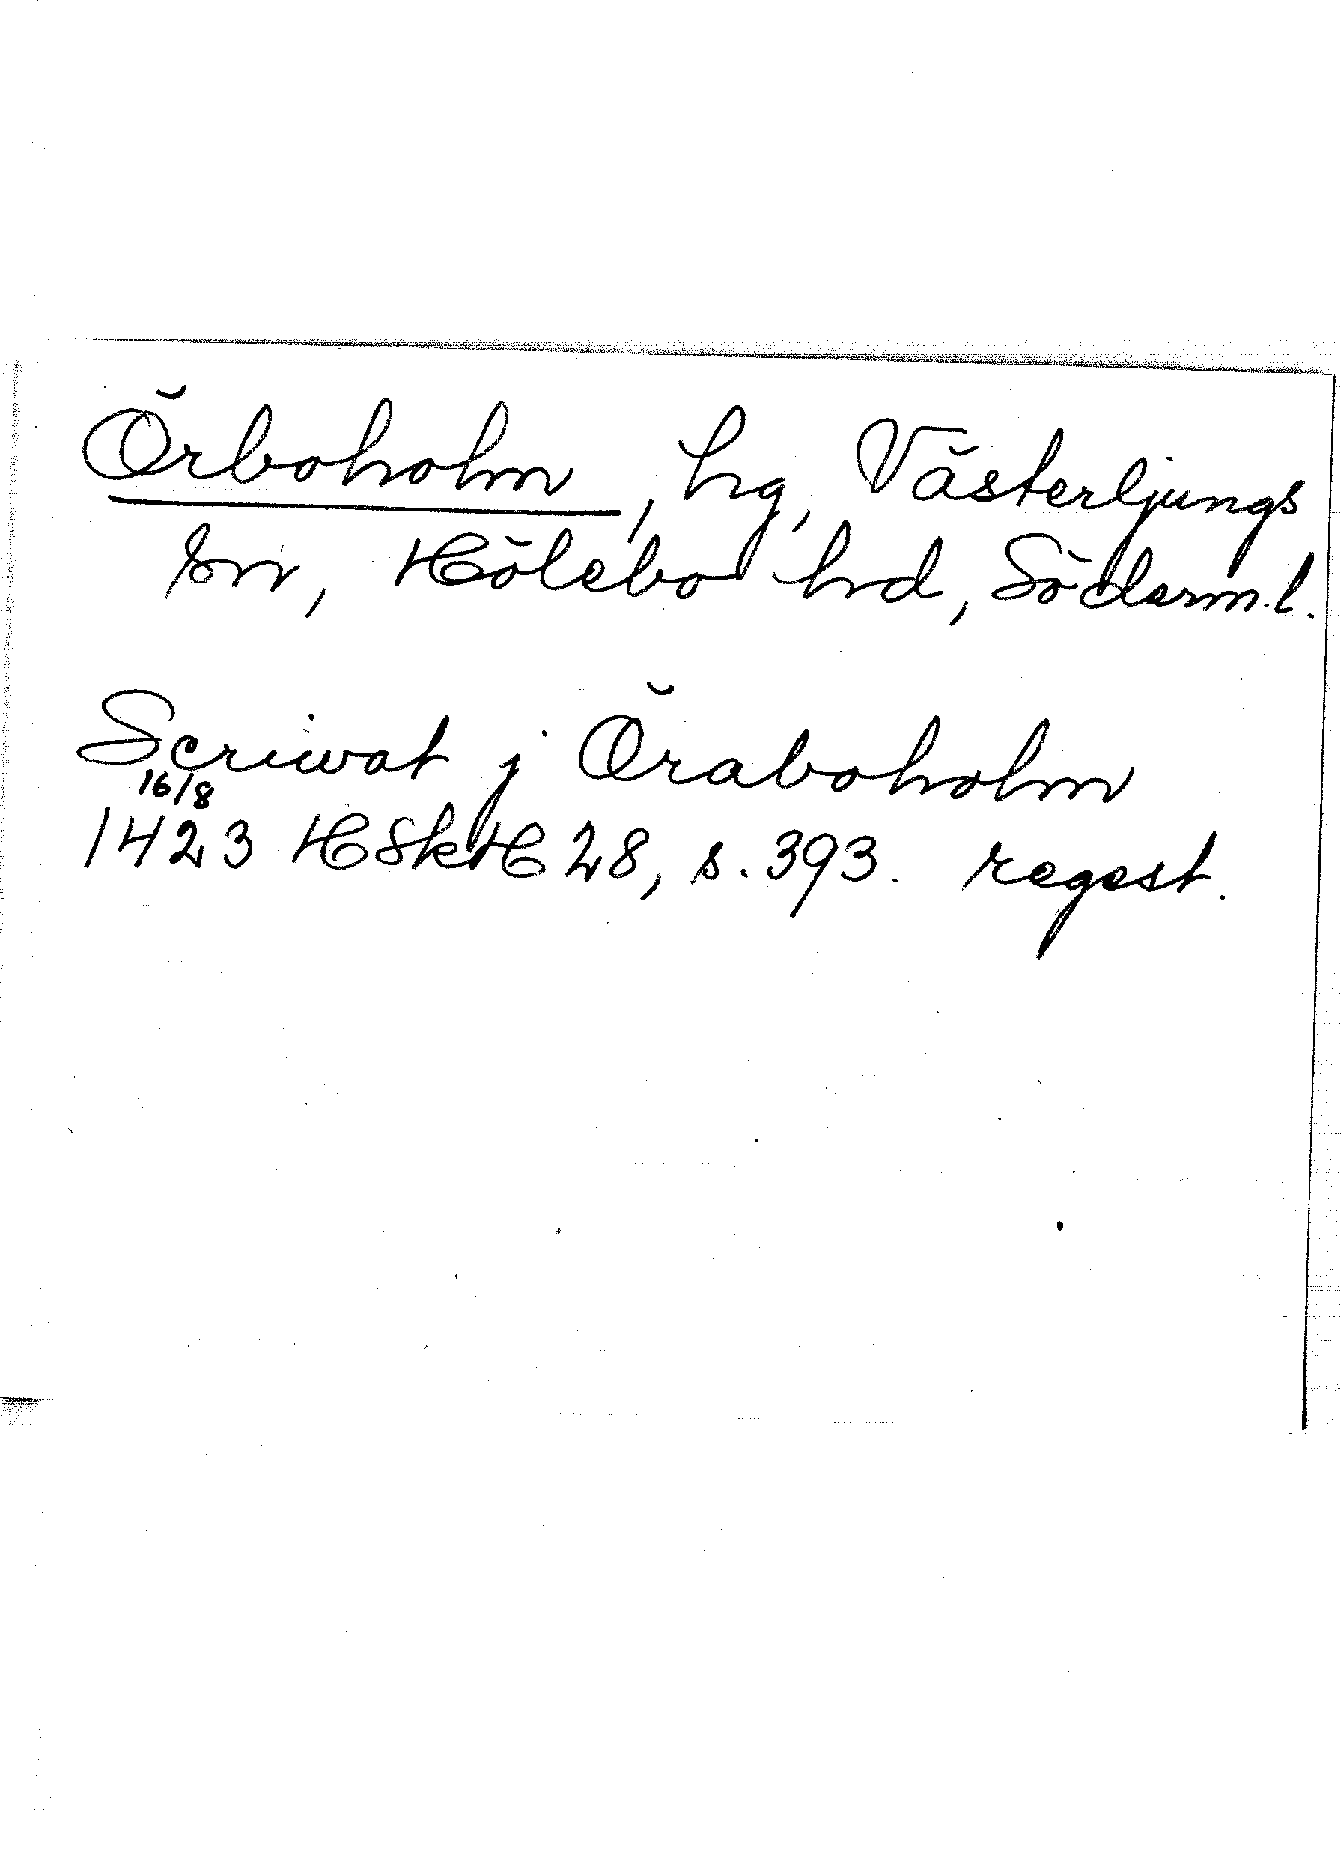 Örboholm, hg, Västerljungs
sn, Hölebo hd, Söderm.l.
Scriwat j Öraboholm
16/8
1423 HSkH 28, s. 393. regest.